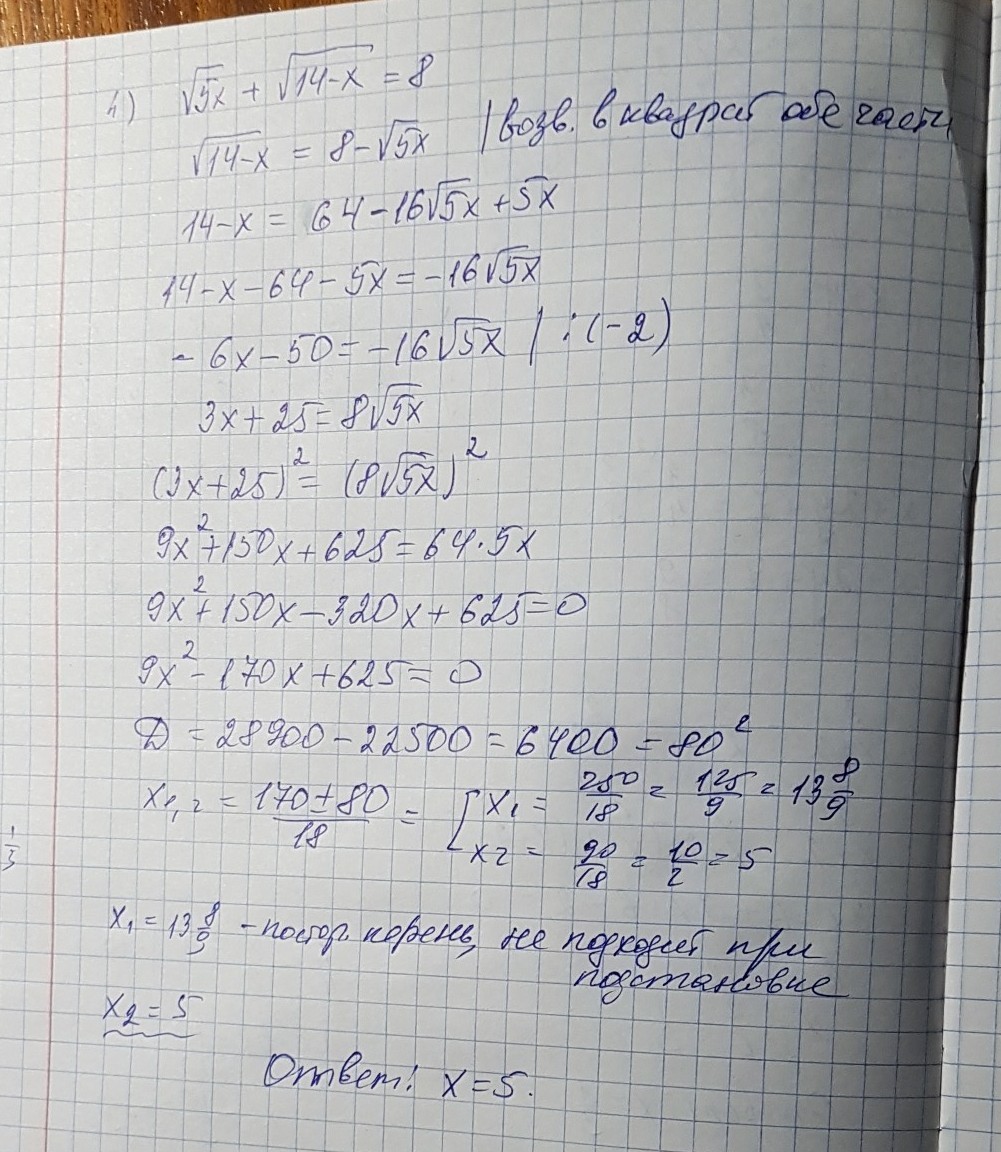 4) √5x + √14-x = 8
√14-x = 8-√5x | возв. в квадрат обе части
14-x = 64-16√5x+5x
14-x-64-5x=-16√5x
-6x-50=-16√5x | :(-2)
3x+25=8√5x
(3x+25)²=(8√5x)²
9x²+150x+625=64·5x
9x²+150x-320x+625=0
9x²-170x+625=0
D = 28900-22500=6400=80²
x₁,₂ = (170±80)/18 = [ x₁ = 250/18 = 125/9 = 13 8/9
x₂ = 90/18 = 10/2 = 5
1/3
x₁ = 13 8/9 - постор. корень, не подходит при
подстановке
x₂ = 5
Ответ: x=5.